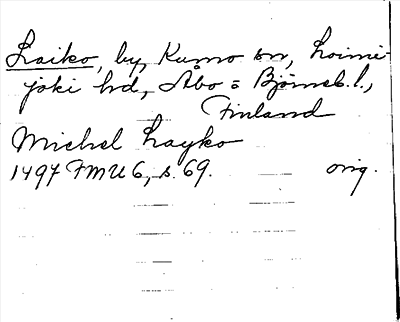 Laiko, by, Kumo sn, Loimi-
joki hd, Åbo = Björneb. l.,
Finland
Michel Layko
1497 FMU 6, s. 69. orig.